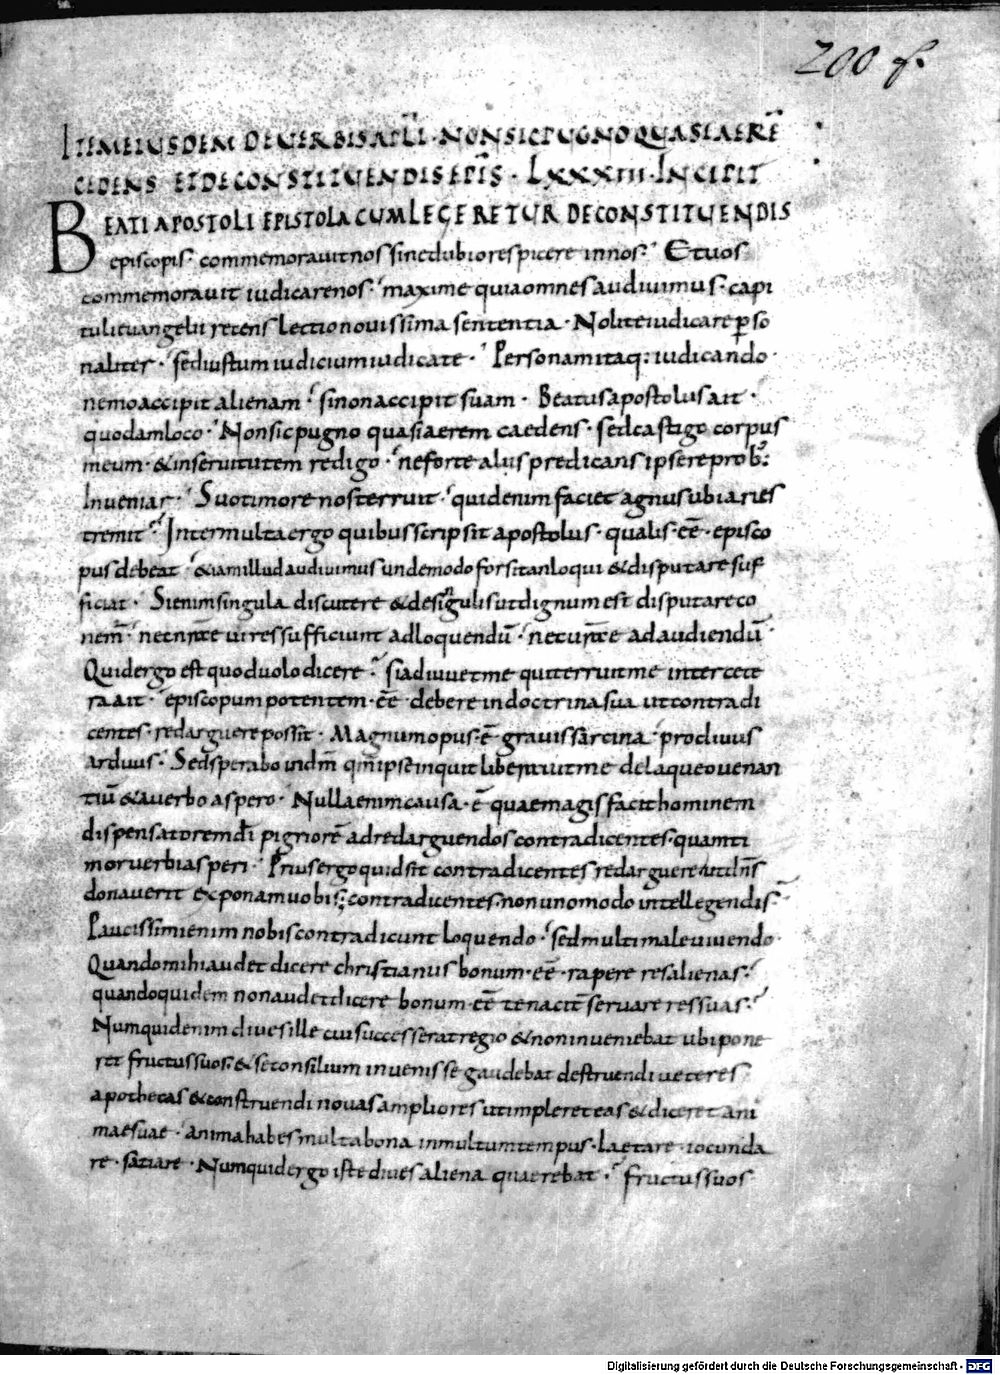 200 f.
ITEM EIUSDEM DE UERBIS APLI · NON SIC PUGNO QUASI AERE
CEDENS ET DE CONSTITUENDIS EPIS · LXXXIII · INCIPIT
BEATI APOSTOLI EPISTOLA CUM LEGERETUR DE CONSTITUENDIS
episcopis · commemorauit nos sine dubio respicere in nos · Et uos
commemorauit iudicare nos · maxime quia omnes audiuimus · capi
tuli euangelii recens lectio nouissima sententia · Nolite iudicare pso
naliter · sed iustum iudicium iudicate · Personam itaq: iudicando
nemo accipit alienam · si non accipit suam · Beatus apostolus ait ·
quodam loco · Non sic pugno quasi aerem caedens · sed castigo corpus
meum · & in seruitutem redigo · ne forte aliis predicans ipse reprob;
Inueniar · Suo timore nos terruit · quid enim faciet agnus ubi aries
tremit · Inter multa ergo quibus scripsit apostolus · qualis · ēē · episco
pus debeat · & iam illud audiuimus unde modo forsitan loqui & disputare suf
ficiat · Si enim singula discutere & de singulis ut dignum est disputare co
nem̄ · nec nr̄ae uires sufficiunt ad loquendū · nec ur̄ae ad audiendū ·
Quid ergo est quod uolo dicere · si adiuuet me qui terruit me inter cete
ra ait · episcopum potentem · ēē · debere in doctrina sua ut contradi
centes · redarguere possit · Magnum opus · ē · grauis sarcina · procliuus
arduus · Sed sperabo in dm̄ qm̄ ipse inquit liberauit me de laqueo uenan
tiū & a uerbo aspero · Nulla enim causa · ē · quae magis facit hominem
dispensatorem dī pigriorē ad redarguendos contradicentes · quam ti
mor uerbi asperi · Prius ergo quid sit contradicentes redarguere ut dn̄s
donauerit exponam uobis; contradicentes · non uno modo intellegendis ·
Paucissimi enim nobis contradicunt loquendo · sed multi male uiuendo ·
Quando mihi audet dicere christianus bonum · ēē · rapere res alienas ·
quandoquidem non audet dicere bonum · ēē tenacit̄ seruare res suas ·
Numquid enim diues ille cui successerat regio & non inueniebat ubi pone
ret fructus suos · & se consilium inuenisse gaudebat destruendi ueteres
apothecas & construendi nouas ampliores ut impleret eas & diceret ani
mae suae · anima habes multa bona in multum tempus · laetare · iocunda
re · satiare · Numquid ergo iste diues aliena quaerebat · fructus suos
Digitalisierung gefördert durch die Deutsche Forschungsgemeinschaft - DFG